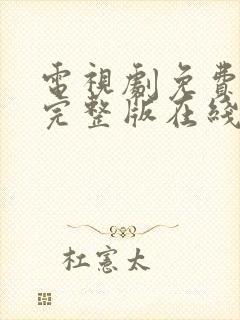 電視劇免費
完整版在綫
杜憲太